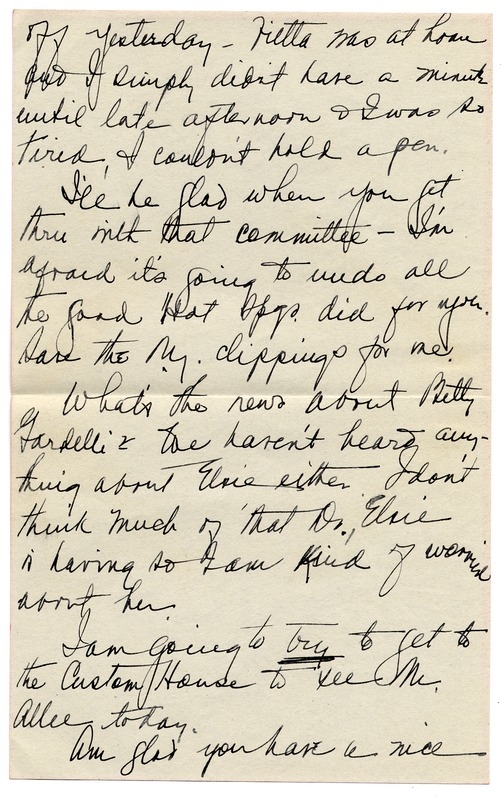 off yesterday - Vietta was at home
and I simply didn't have a minute
until late afternoon & I was so
tired I couldn't hold a pen.
I'll be glad when you get
thru with that committee - I'm
afraid it's going to undo all
the good Hot Spgs. did for you.
Save the Ny. clippings for me.
What's the news about Betty
Fardelli? I've haven't heard any-
thing about Elsie either I don't
think much of that Dr. Elsie
is having so I am kind of worried
about her.
I am going to try to get to
the Custom House to see Mr.
Allee today.
Am glad you have a nice